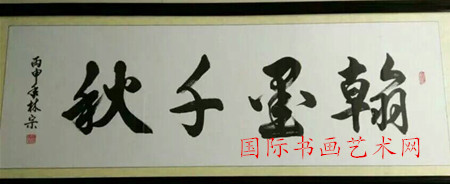 翰墨千秋
丙申年林宗
国际书画艺术网